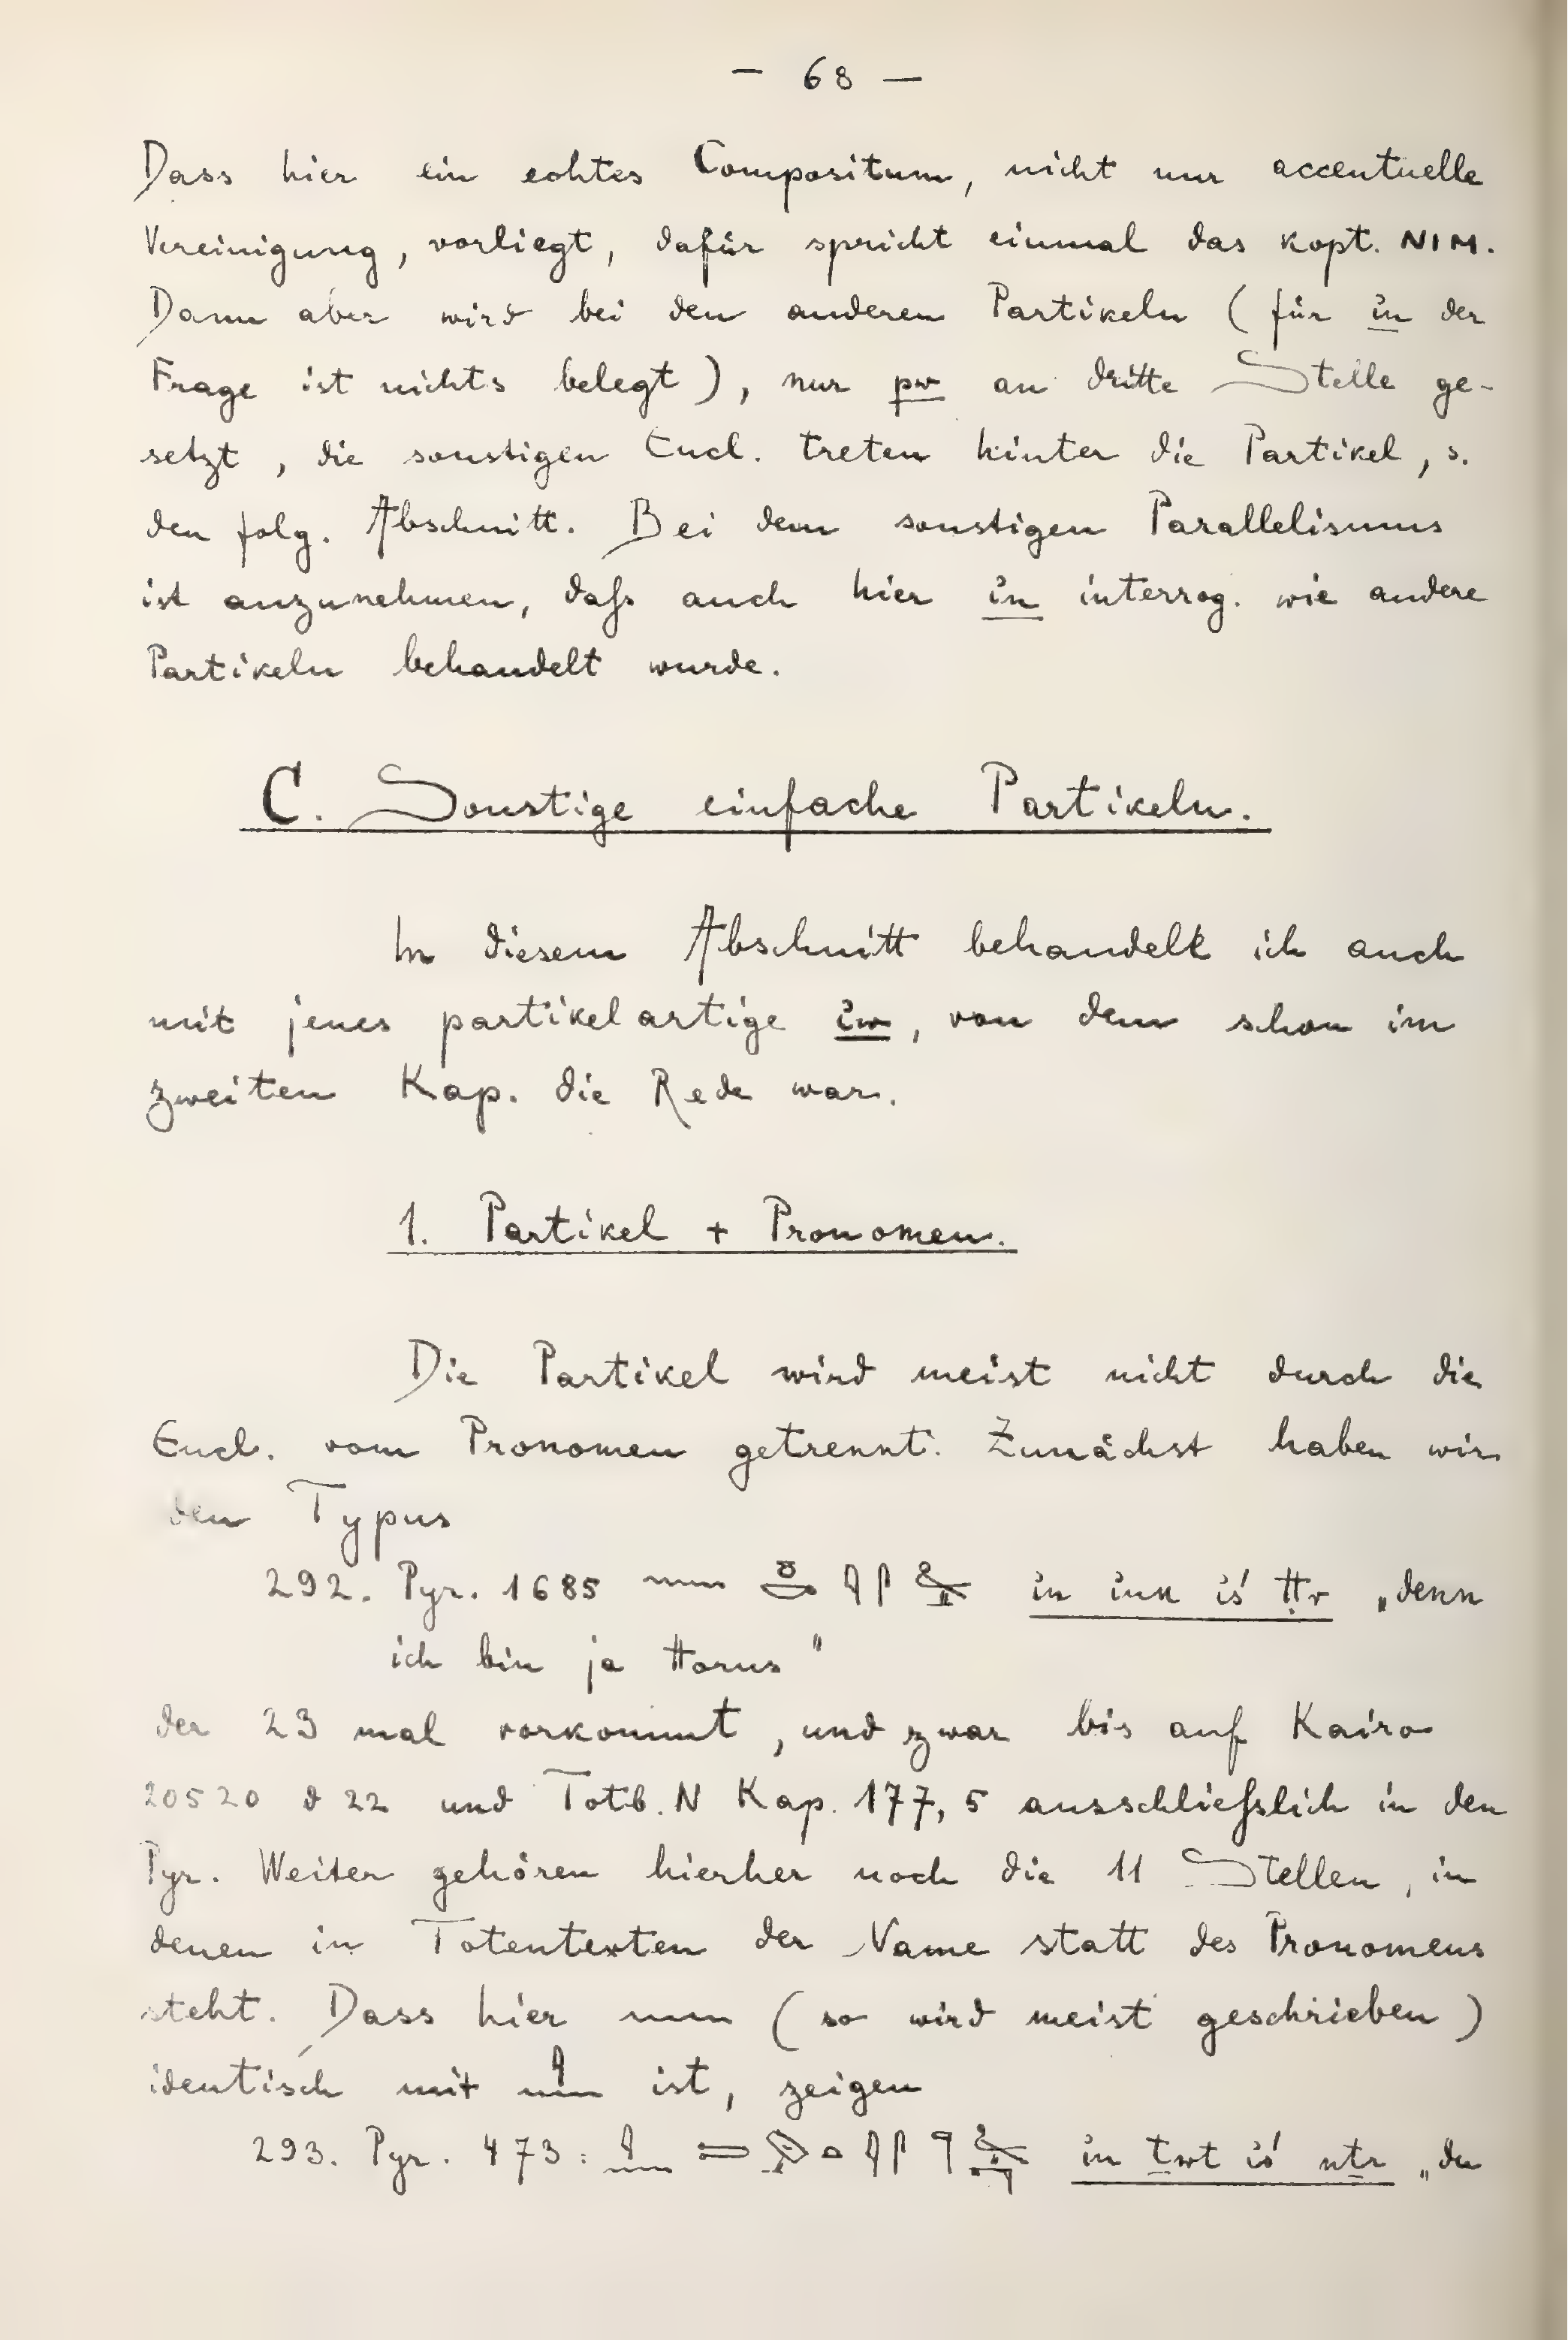 — 68 —
Dass hier ein echtes Compositum, nicht nur accentuelle
Vereinigung, vorliegt, dafür spricht einmal das kopt. ⲚⲒⲘ.
Dann aber wird bei den anderen Partikeln (für in der
Frage ist nichts belegt), nur pw an dritte Stelle ge-
setzt, die sonstigen Encl. treten hinter die Partikel, s.
den folg. Abschnitt. Bei dem sonstigen Parallelismus
ist anzunehmen, daſs auch hier in interrog. wie andere
Partikeln behandelt wurde.
C. Sonstige einfache Partikeln.
In diesem Abschnitt behandelt ich auch
mit jenes partikelartige iw, von dem schon im
zweiten Kap. die Rede war.
1. Partikel + Pronomen.
Die Partikel wird meist nicht durch die
Encl. vom Pronomen getrennt. Zunächst haben wir
den Typus
292. Pyr. 1685 𓈖 𓏌𓎡 𓇋𓋴 𓅃 in ink iś Ḥr „denn
ich bin ja Horus"
der 23 mal vorkommt, und zwar bis auf Kairo
20520 d 22 und Totb. N Kap. 177, 5 ausschlieſslich in den
Pyr. Weiter gehören hierher noch die 11 Stellen, in
denen in Totentexten der Name statt des Pronomens
steht. Dass hier 𓈖 (so wird meist geschrieben)
identisch mit 𓇋𓈖 ist, zeigen
293. Pyr. 473: 𓇋𓈖 𓍿𓅱𓏏 𓇋𓋴 𓊹𓅆 in ṯwt iś nṯr „du